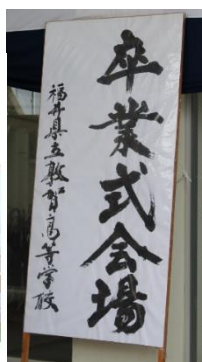 卒業式会場
福井県立敦賀高等学校